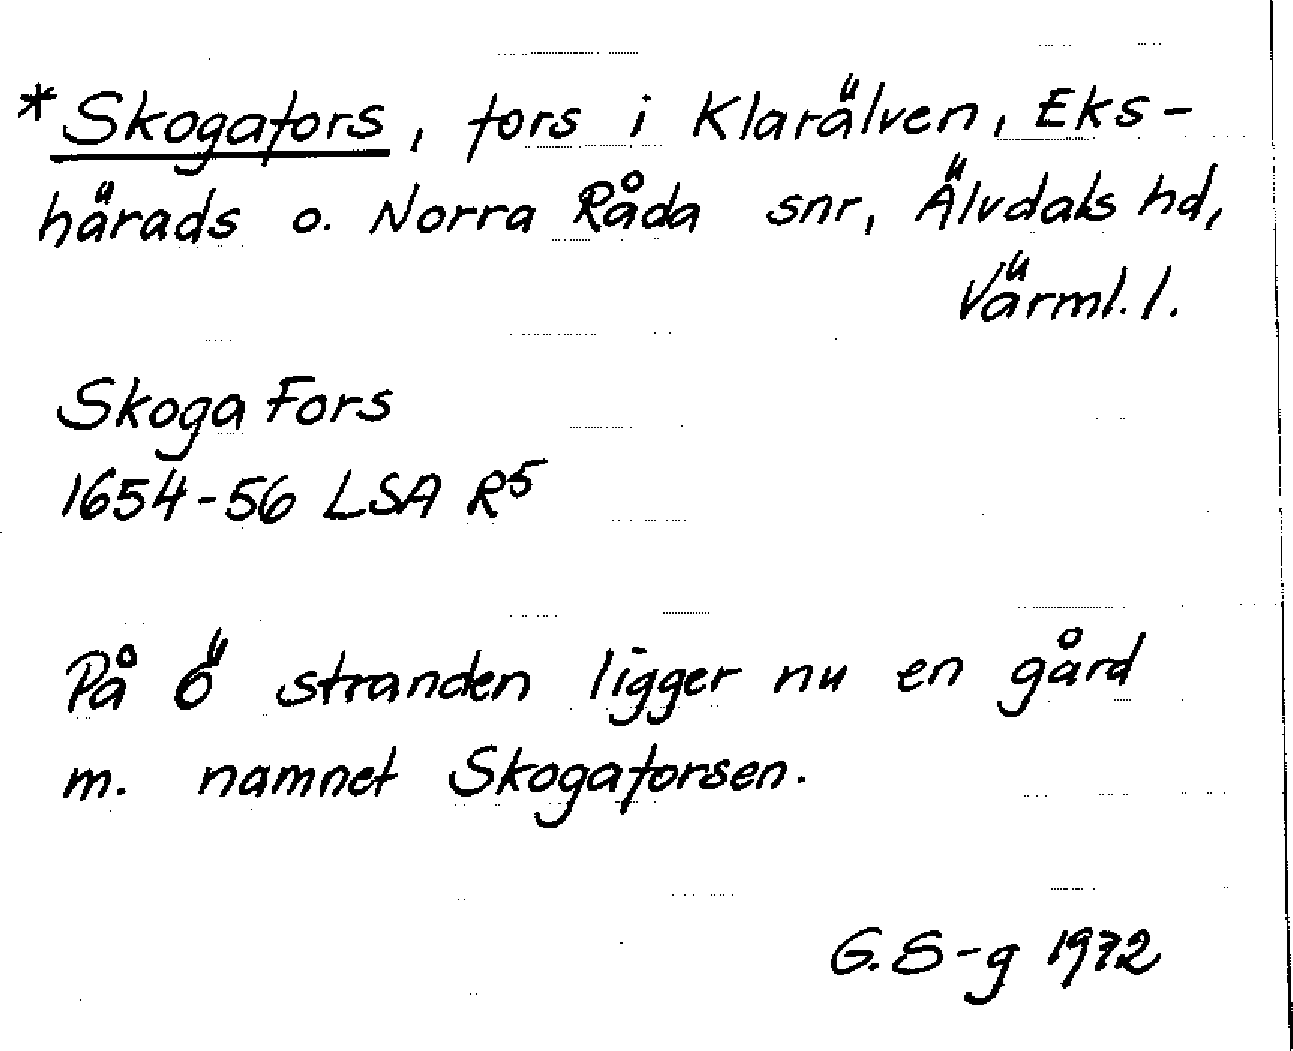 *Skogafors, fors i Klarälven, Eks-
härads o. Norra Råda snr, Älvdals hd,
Värml. l.
Skoga Fors
1654-56 LSA R5
På ö stranden ligger nu en gård
m. namnet Skogaforsen.
G. S-g 1972